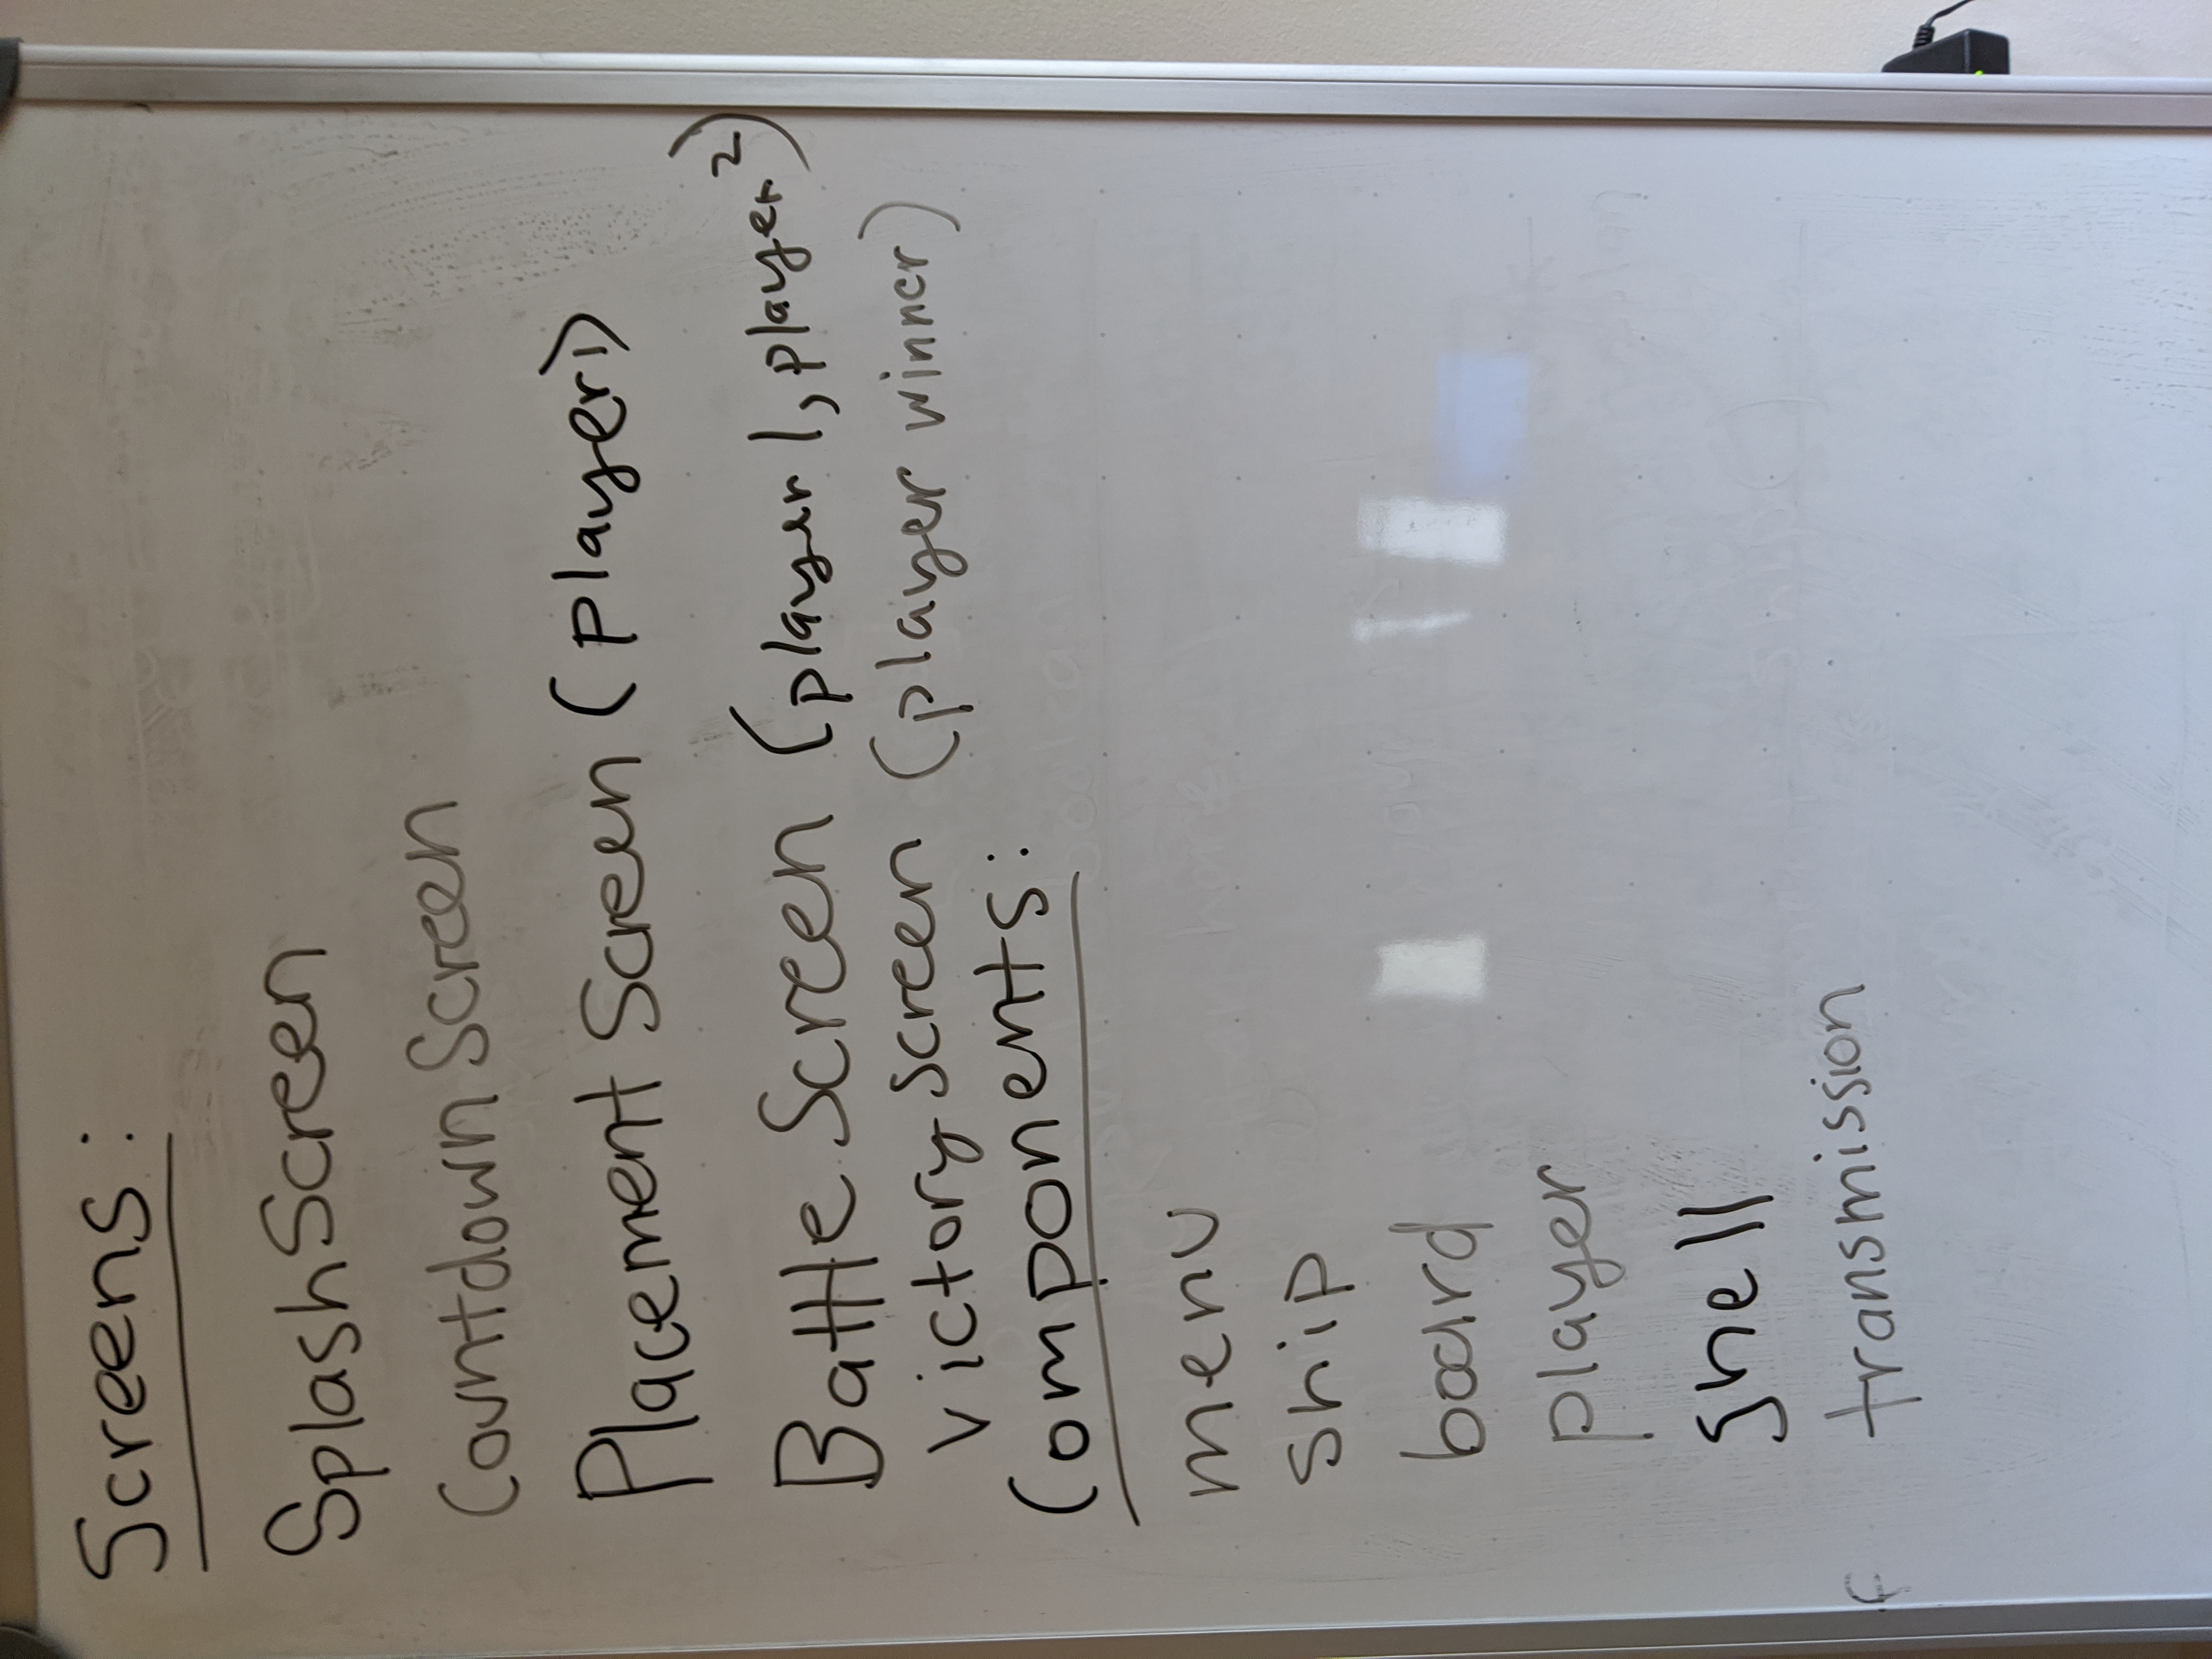 Screens:
SplashScreen
Countdown Screen
Placement Screen (player1)
Battle Screen (player 1, player 2)
Victory Screen (player winner)
Components:
menu
ship
board
player
shell
transmission